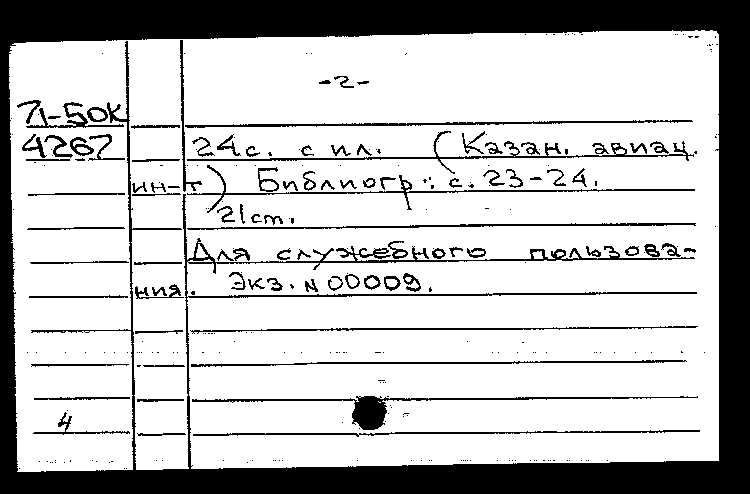 -2-
Д-50К
4267 24с. с ил. (Казан. авиац.
ин-т) Библиогр.: с. 23-24.
21cm.
Для служебного пользова-
ния. Экз. N 00009.
4